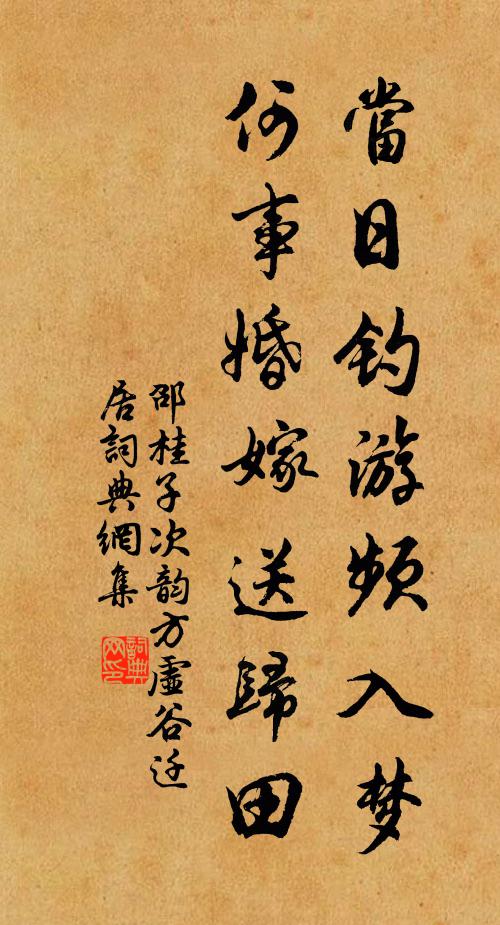 當日釣游頻入梦
何事婚嫁送歸田
邵桂子次韵方虛谷迁
居詞典網集
詞典
网印